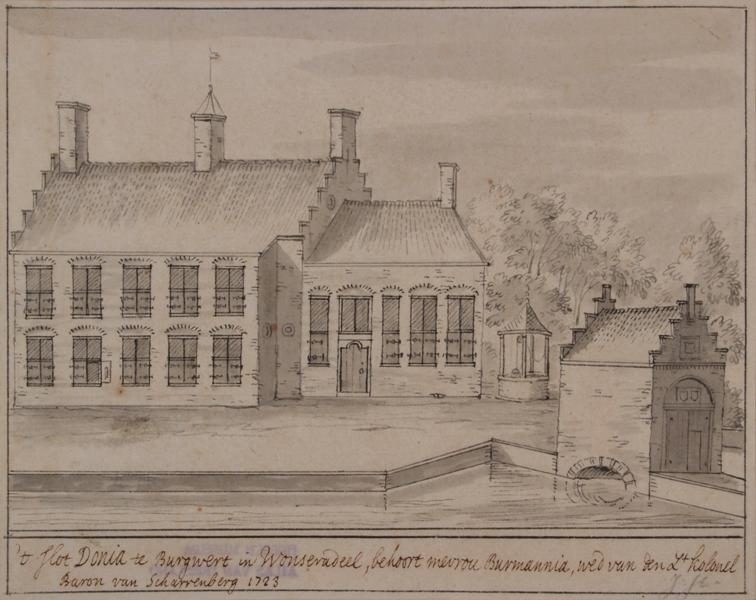 't Slot Donia te Burgwert in Wonseradeel, behoort mevrou Burmannia, wed van den Lt kolonel
Baron van Scharrenberg 1723